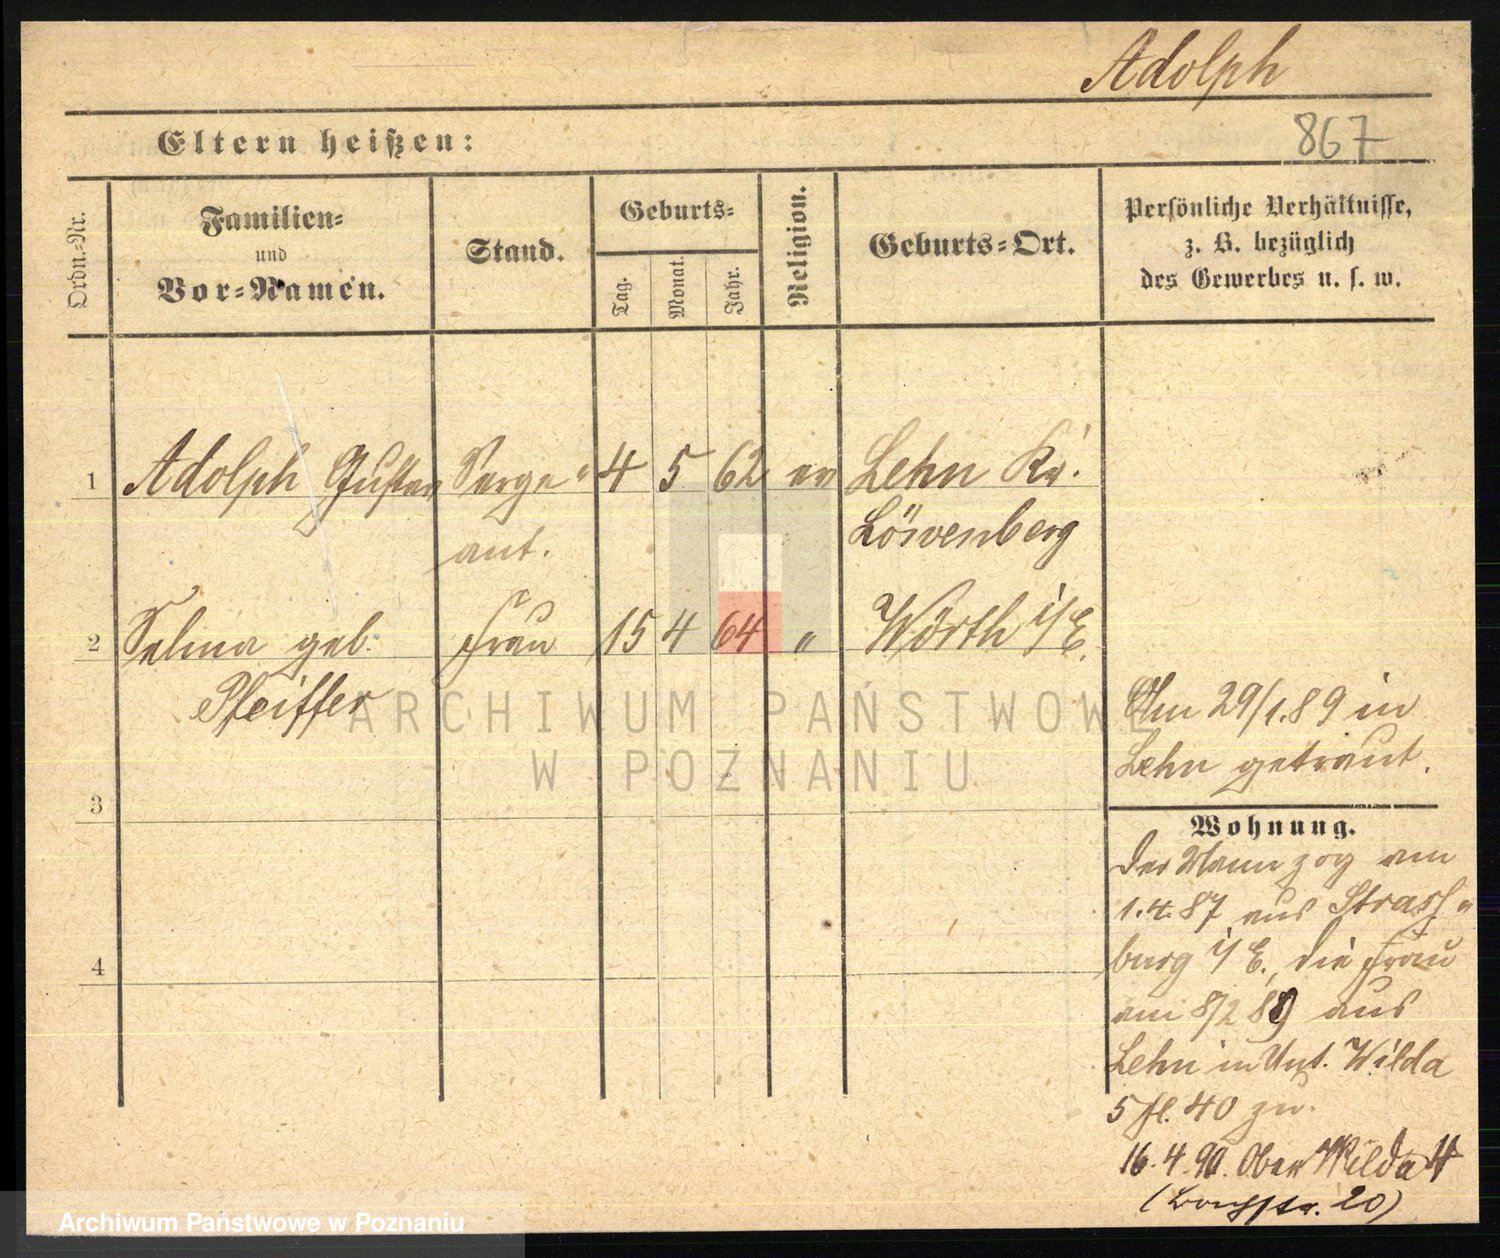 Adolph
867
Eltern heißen:
Ordn.-Nr.
Familien-
und
Vor-Namen.
Stand.
Geburts-
Tag.
Monat.
Jahr.
Religion.
Geburts-Ort.
Persönliche Verhältnisse,
z. B. bezüglich
des Gewerbes u. s. w.
1 Adolph Gustav Serge- 4 5 62 ev Lehn Kr.
ant. Löwenberg
2 Selma geb. Frau 15 4 64 " Wörth i/E.
Pfeiffer
Am 29/1.89 in
Lehn getraut.
3
4
Wohnung.
Der Mann zog am
1.4.87 aus Straß-
burg i/E., die Frau
am 8/2 89 aus
Lehn in Unt. Wilda
5 fl. 40 zu.
16.4.90. Ober Wilda 4
20)
ARCHIWUM PAŃSTWOWE
W POZNANIU
Archiwum Państwowe w Poznaniu